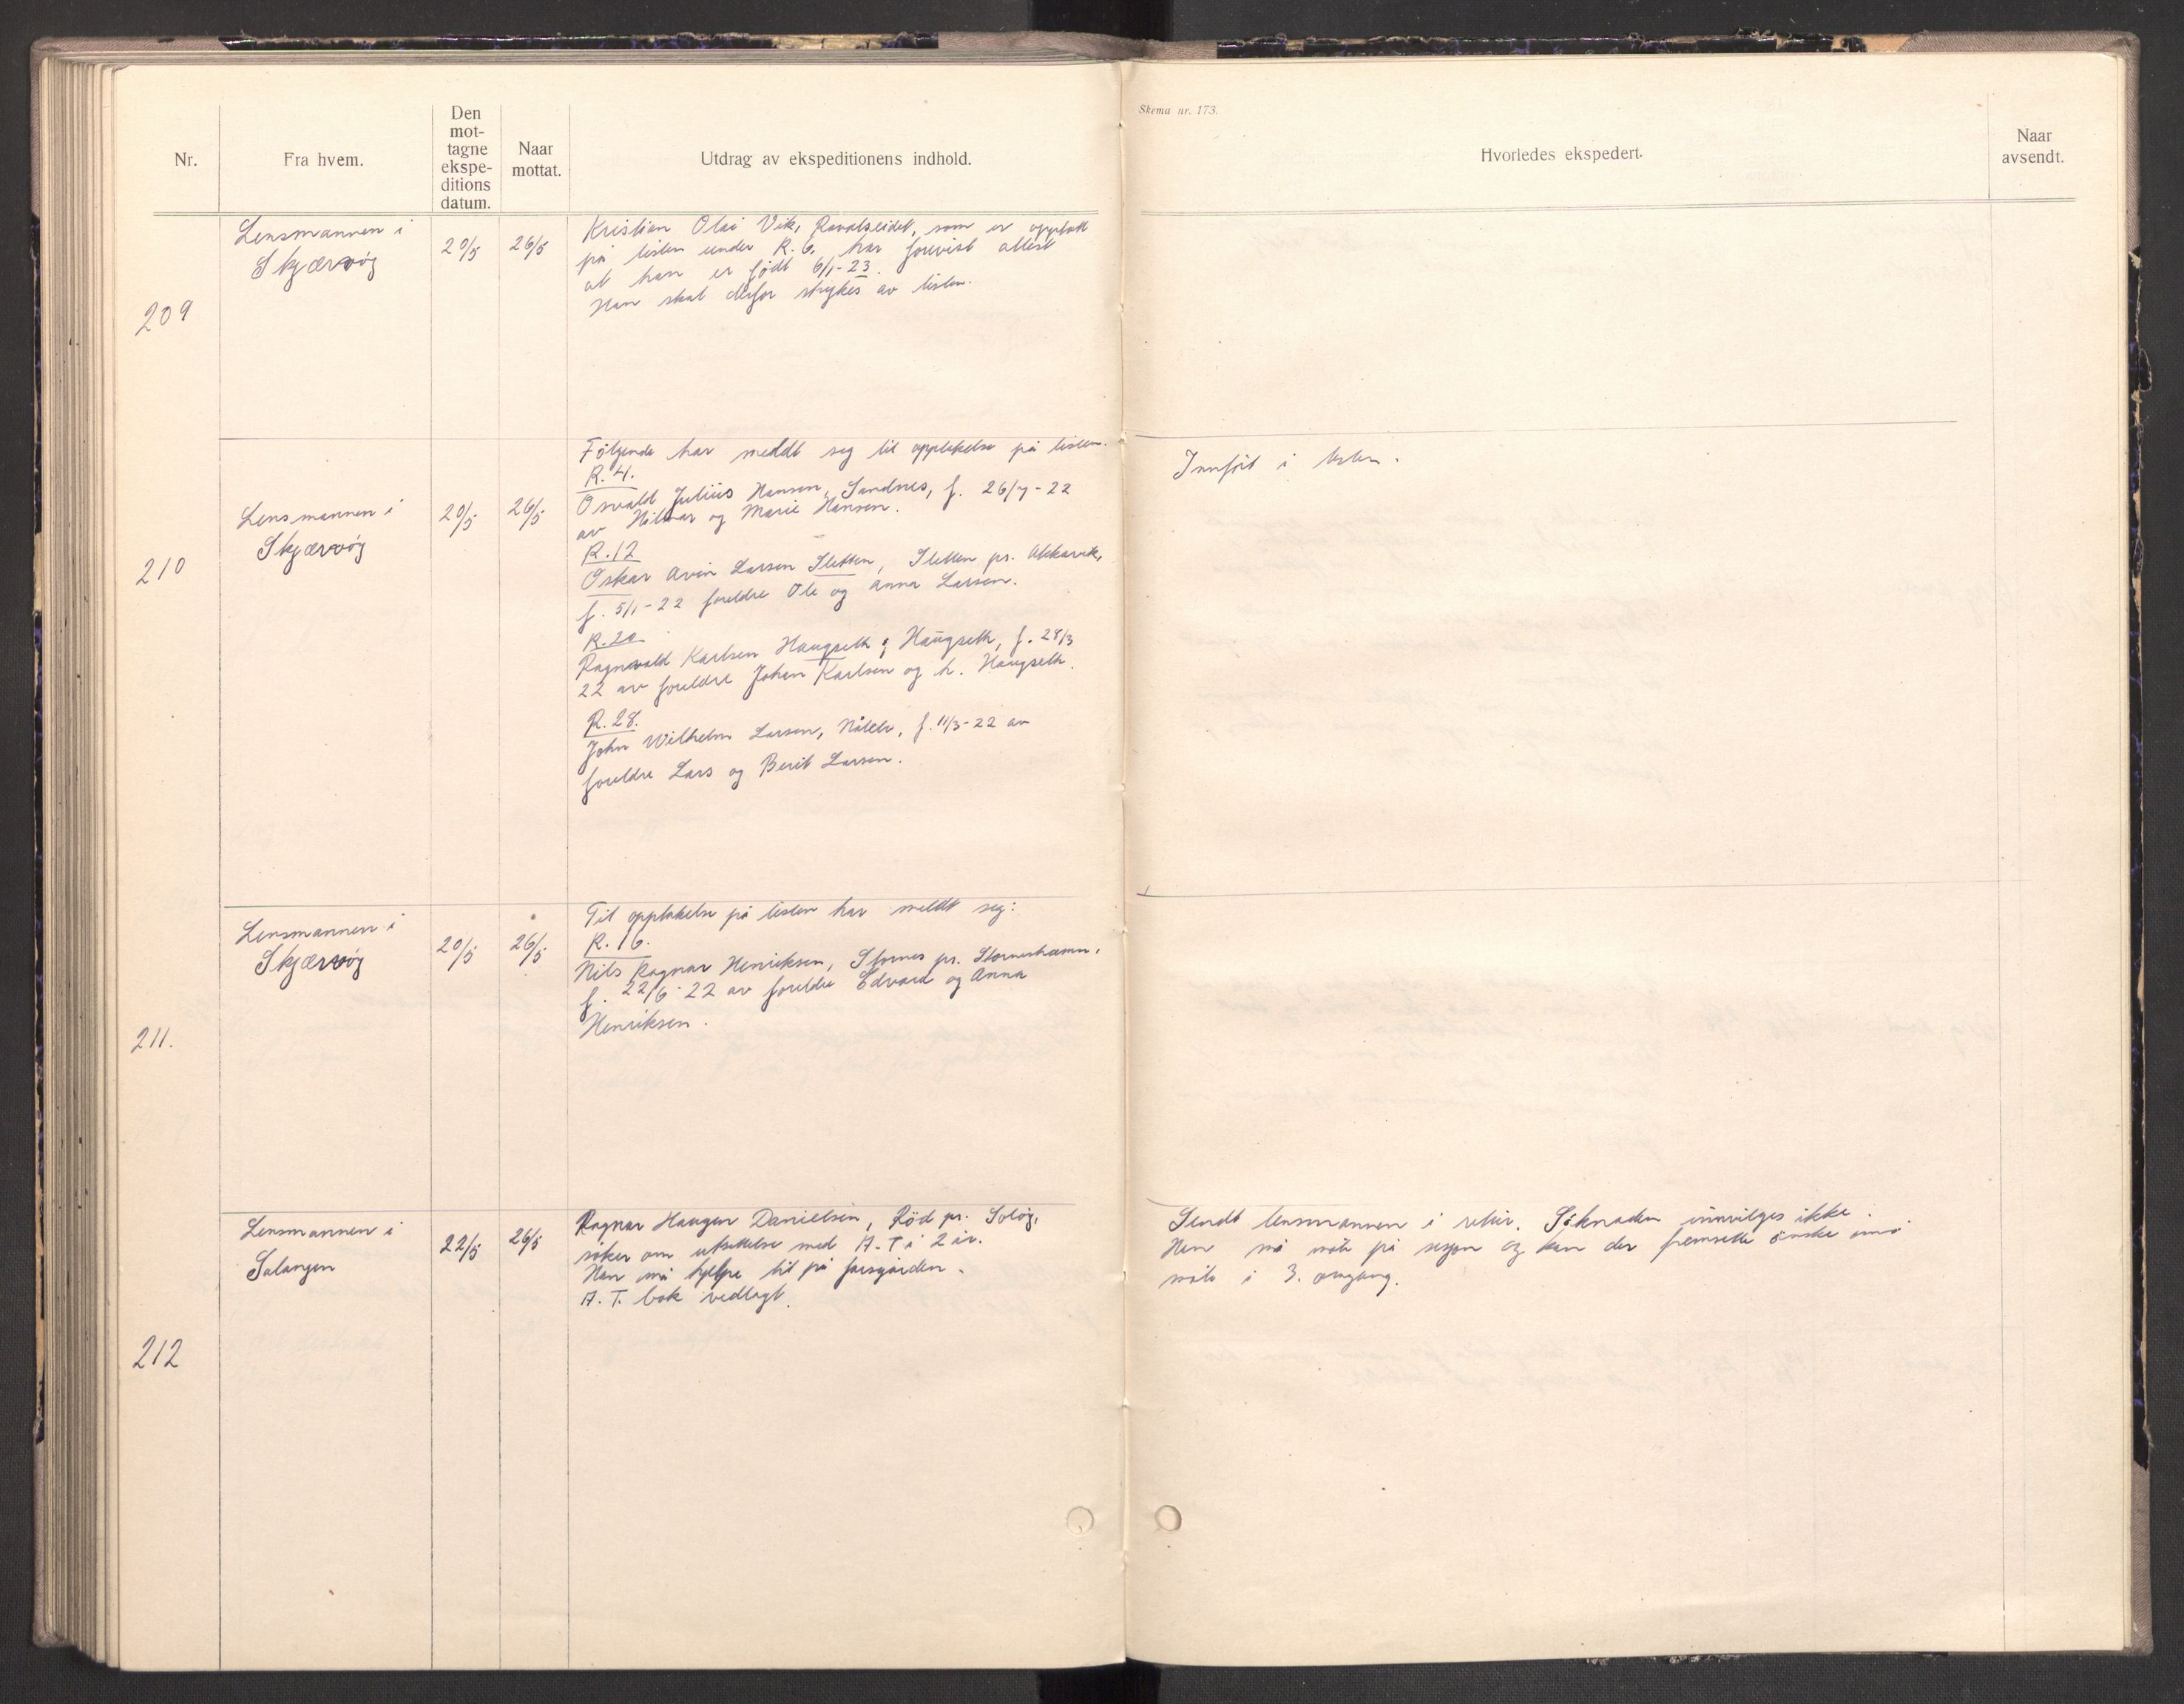 Nr.
Fra hvem.
Den
mot-
tagne
ekspe-
ditions
datum.
Naar
mottat.
Utdrag av ekspeditionens indhold.
Skema nr. 173.
Hvorledes ekspedert.
Naar
avsendt.
209
Lensmannen i
Skjærvöy
20/5
26/5
Kristian Olai Vik, Ravalseidet, som er opptatt
på listen under R. 6. har forevist attest
at han er født 6/1-23.
Han skal derfor strykes av listen.
210
Lensmannen i
Skjærvöy
20/5
26/5
Fölgende har meldt seg til opptakelse på listen.
R. 4.
Osvald Julius Hansen, Sandnes, f. 26/7-22
av Hilmar og Marie Hansen.
R. 12
Oskar Arvin Larsen Sletten, Sletten pr. Akkarvik,
f. 5/1-22 foreldre Ole og Anna Larsen.
R. 20
Ragnvald Karlsen Haugseth, Haugseth, f. 28/3
22 av foreldre Johan Karlsen og h. Haugseth.
R. 28.
John Wilhelm Larsen, f. 11/3-22 av
foreldre Lars og Berit Larsen.
Innfört i listen.
211.
Lensmannen i
Skjærvöy
20/5
26/5
Til opptakelse på listen har meldt seg:
R. 16.
Nils Ragnar Henriksen, Stornes pr. Storneshamn,
f. 22/6-22 av foreldre Edvard og Anna
Henriksen.
212
Lensmannen i
Salangen
22/5
26/5
Ragnar Haugen Danielsen, Röd pr. Solöy,
söker om utsettelse med A-T i 2 år.
Han må hjelpe til på farsgården.
A. T. bok vedlagt.
Sendt lensmannen i retur. Söknaden innvilges ikke.
Han må möte på sesjon og kan der fremsette önske om å
möte i 3. omgang.